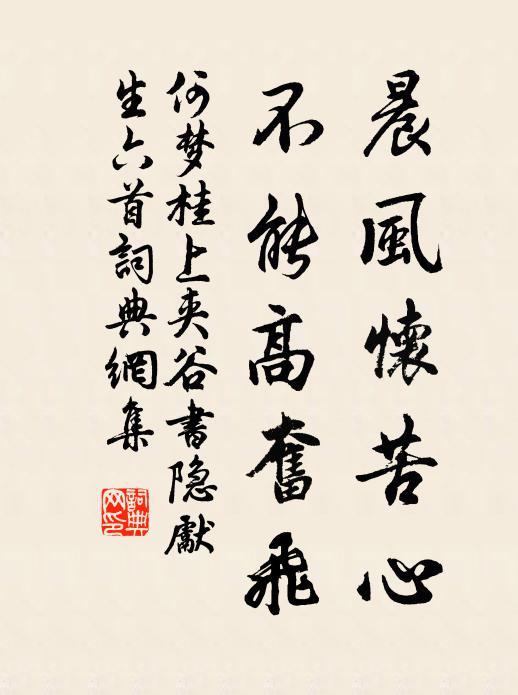 晨風懷苦心
不能高奮飛
何梦桂上夹谷書隐獻
生六首詞典網集
詞典
网印